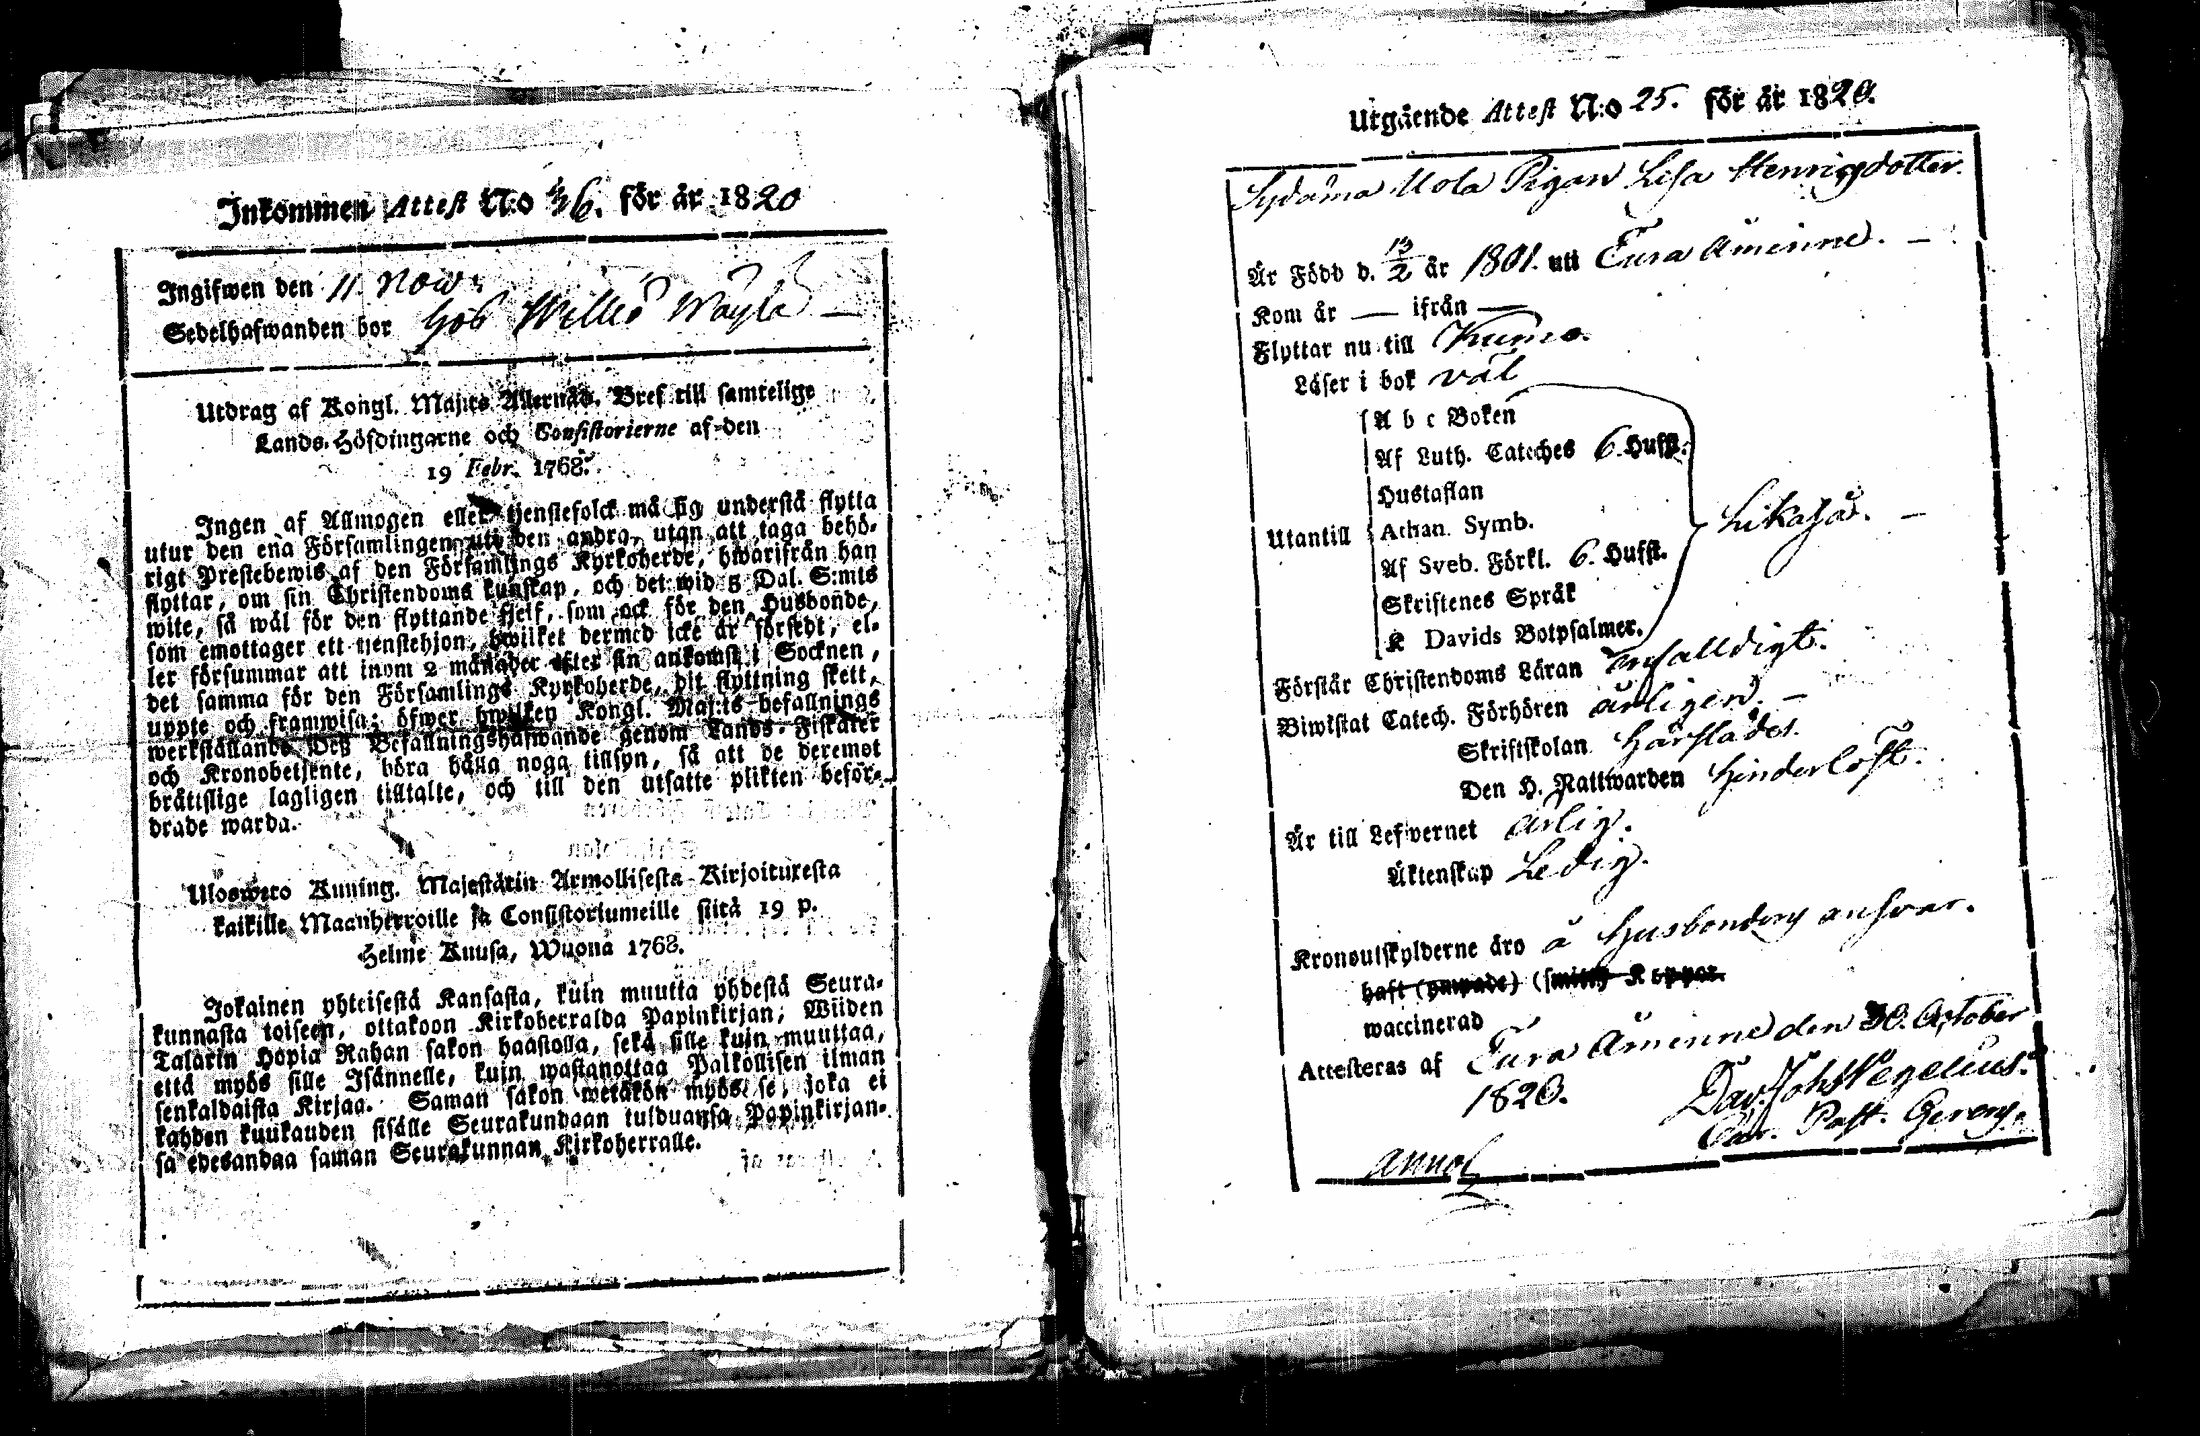 Inkommen Attest N:o 36. för år 1820
Ingifwen den 11 Now:
Sedelhafwanden bor hos
Utdrag af Kongl. Maj:ts Allernåd. Bref till samtelige
Lands-Höfdingarne och Consistorierne af den
19 Febr. 1768.
Ingen af Allmogen eller tjenstefolck må sig understå flytta
utur den ena Församlingen uti den andra, utan att taga behö-
rigt Prestebewis af den Församlings Kyrkoherde, hwarifrån han
flyttar, om sin Christendoms kunskap, och det wid 5 Dal. S:mts
wite, så wäl för den flyttande sjelf, som ock för den Husbonde,
som emottager ett tienstehjon, hwilket dermed icke är försedt, el-
ler försummar att inom 2 månader efter sin ankomst i Socknen,
det samma för den Församlings Kyrkoherde, dit flyttning skett,
uppte och framwisa; öfwer hwilken Kongl. Maj:ts befallnings
werkställande Deß Befallningshafwande genom Lands-Fiskaler
och Kronobetjente, böra hålla noga tillsyn, så att de deremot
bråttslige lagligen tilltalte, och till den utsatte plikten beför-
drade warda.
Uloswero Kuning. Majestätin Armollisesta Kirjoituxesta
kaikille Maanherroille ja Consistoriumeille siitä 19 p.
Helme Kuusa, Wuona 1768.
Jokainen yhteisestä Kansasta, kuin muutta yhdestä Seura-
kunnasta toiseen, ottakoon Kirkoherralda Papinkirjan; Wiiden
Talarin Hopia Rahan sakon haastolla, sekä sille kuin muuttaa,
että myös sille Isännelle, kuin wastanottaa Palkollisen ilman
senkaldaista Kirjaa. Saman sakon wetäkön myös se, joka ei
kahden kuukauden sisälle Seurakundaan tulduansa Papinkirjan-
sa edesandaa saman Seurakunnan Kirkoherralle.
Utgående Attest N:o 25. för år 1820.
Pigan Lisa Henrigsdotter.
Är Född d. 13/2 år 1801. uti Eura Åminne. —
Kom år — ifrån —
Flyttar nu till Kumo.
Läser i bok väl
A b c Boken
Af Luth. Cateches 6 Hufst.
Hustaflan
Utantill Athan. Symb. Likaså. —
Af Sveb. Förkl. 6. Hufst.
Skriftenes Språk
K Davids Botpsalmer.
Förstår Christendoms Läran enfalldigt.
Biwistat Catech. Förhören årligen. —
Skriftskolan härstädes.
Den H. Nattwarden hinderlöst.
Är till Lefvernet ärlig.
Äktenskap Ledig.
Kronoutskylderne äro å Husbondens ansvar.
haft (ympade) (smitt) Koppor.
waccinerad
Attesteras af Eura Åminne den 30. October
1820. Dav. Joh.
Past.